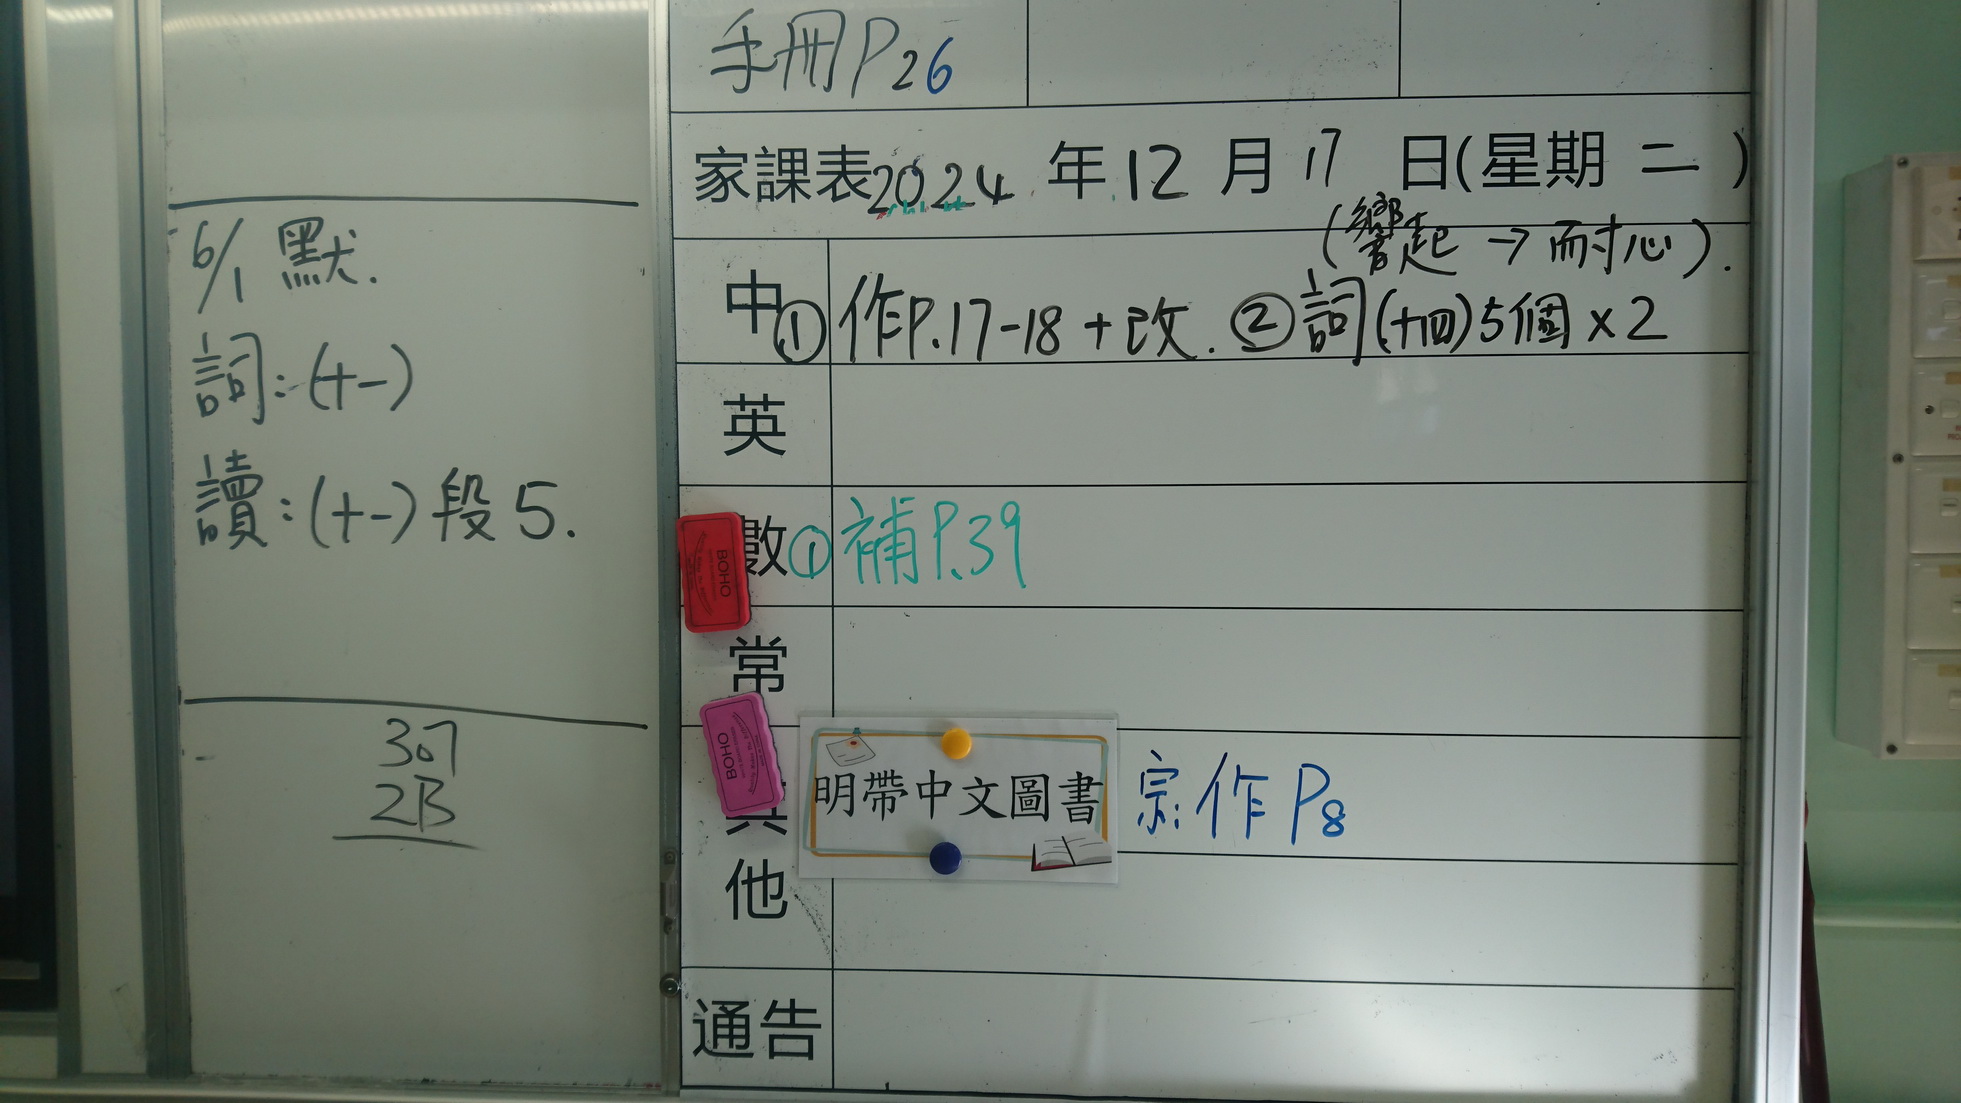 6/1 默.
詞:(十一)
讀:(十一)段5.
307
2B
手冊P26
家課表2024年12月17日(星期二)
(響起→耐心).
中①作P.17-18+改.②詞(十四)5個x2
英
數①補P.39
常
其他
明帶中文圖書
宗:作P8
通告
BOHO
BOHO